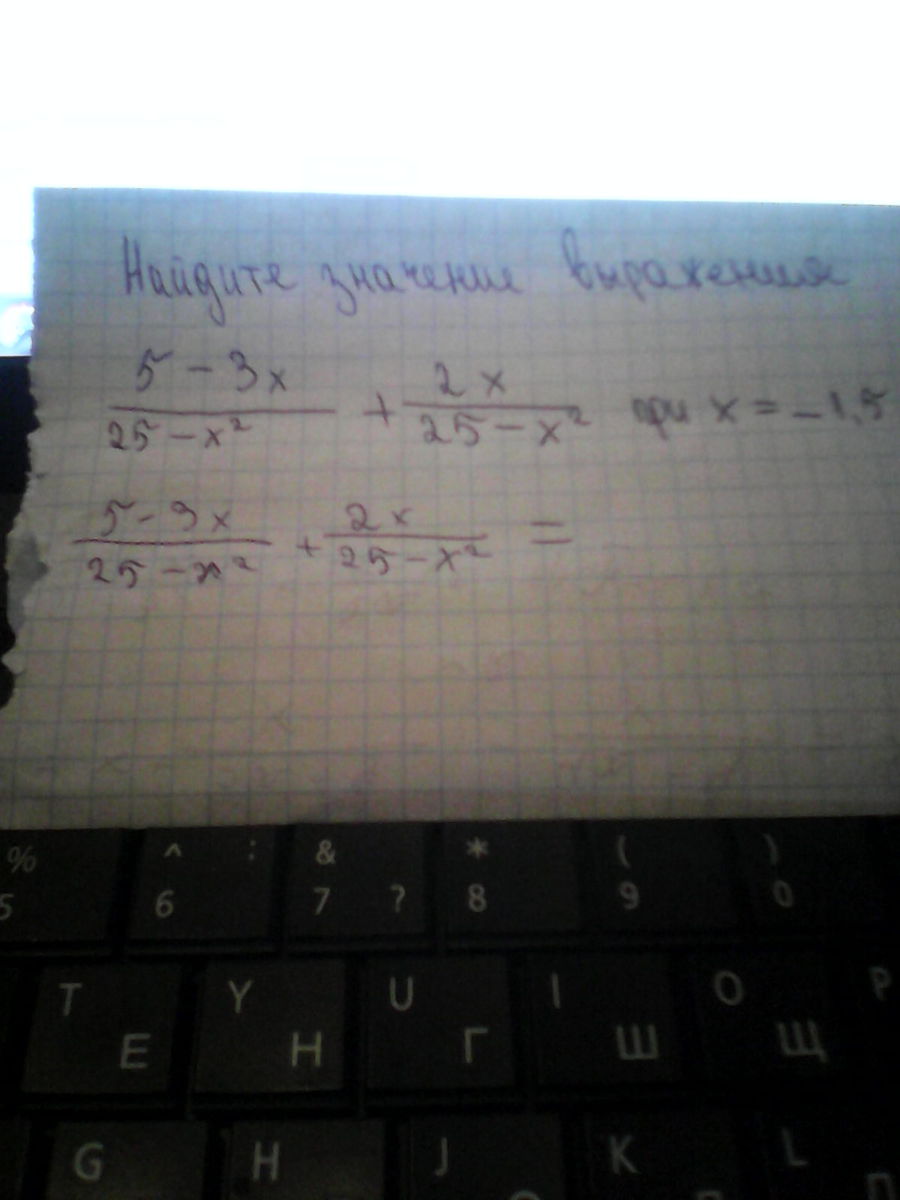 Найдите значение выражения
5 - 3x / 25 - x² + 2x / 25 - x² при x = -1,5
5 - 3x / 25 - x² + 2x / 25 - x² =
% ^ : & * ( )
5 6 7 ? 8 9 0
T Y U I O P
Е Н Г Ш Щ
G H J K L